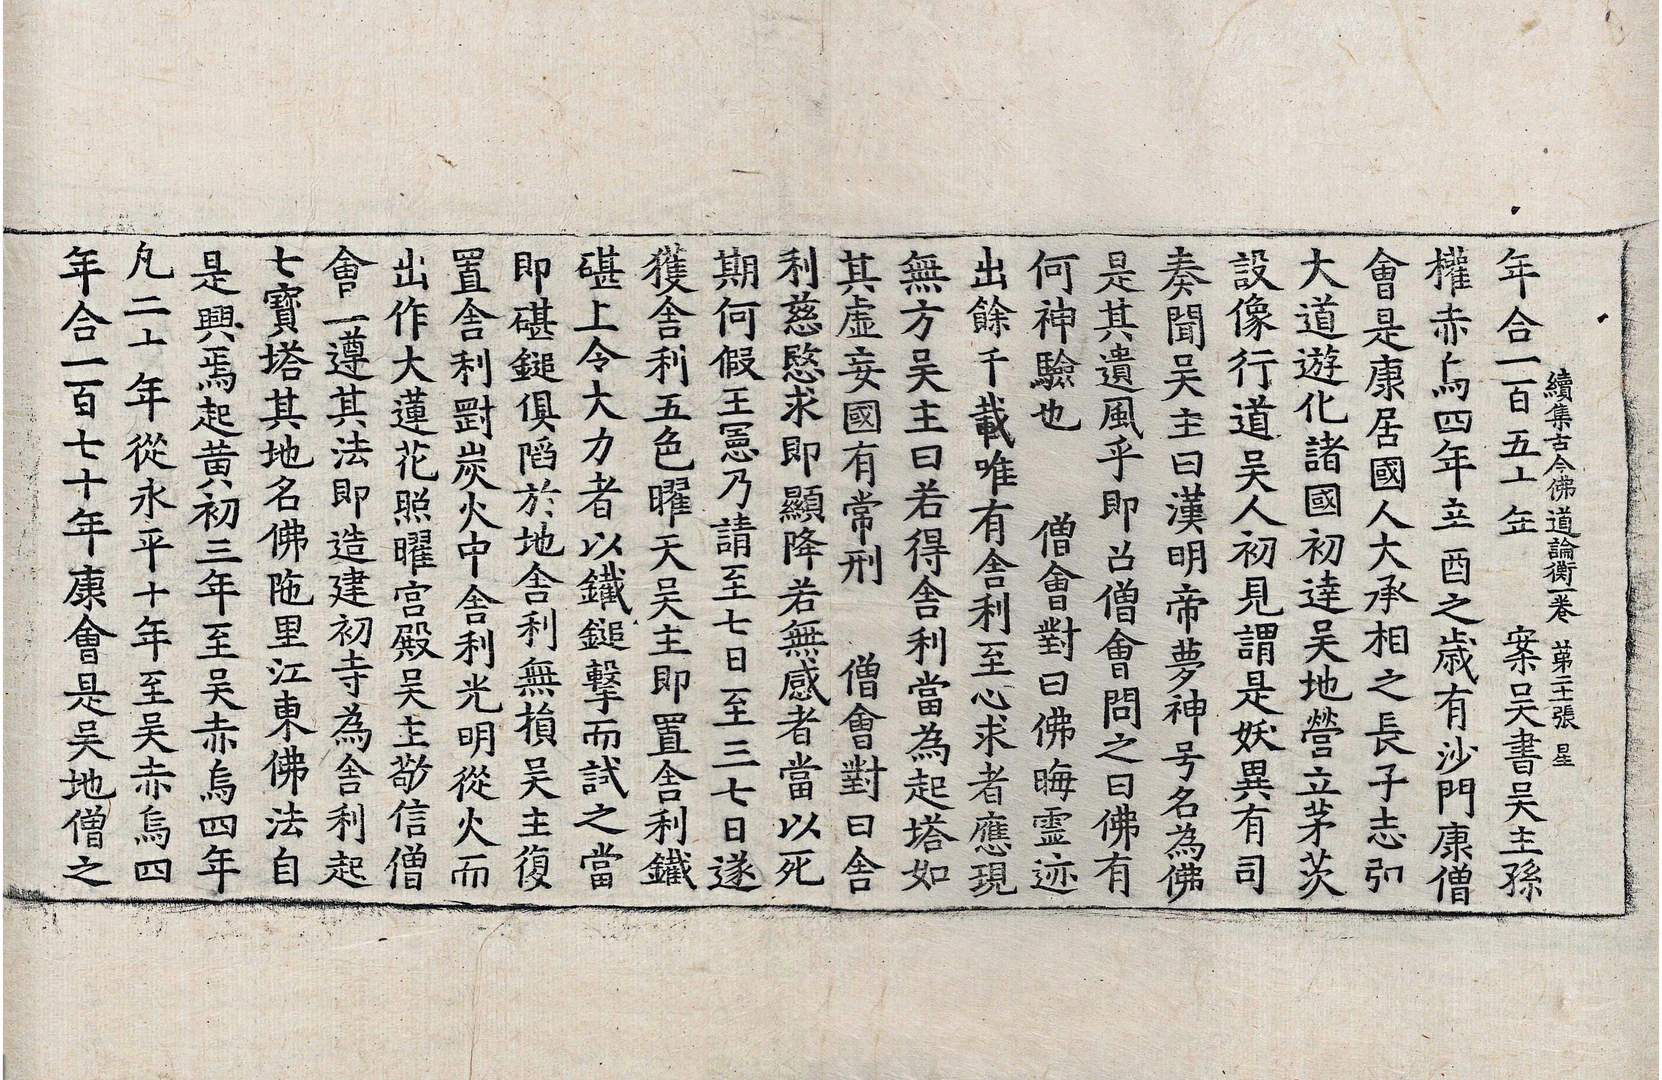 續集古今佛道論衡一卷　第二十張　星
年合一百五十年　案吳書吳主孫
權赤烏四年立酉之歲有沙門康僧
會是康居國人大承相之長子志弘
大道遊化諸國初達吳地營立茅茨
設像行道吳人初見謂是妖異有司
奏聞吳主曰漢明帝夢神号名為佛
是其遺風乎即召僧會問之曰佛有
何神驗也　僧會對曰佛晦靈迹
出餘千載唯有舍利至心求者應現
無方吳主曰若得舍利當為起塔如
其虛妄國有常刑　僧會對曰舍
利慈愍求即顯降若無感者當以死
期何假王憲乃請至七日至三七日遂
獲舍利五色曜天吳主即置舍利鐵
碪上令大力者以鐵鎚擊而試之當
即碪鎚俱䧟於地舍利無損吳主復
置舍利㔁炭火中舍利光明從火而
出作大蓮花照曜宮殿吳主敬信僧
會一遵其法即造建初寺為舍利起
七寶塔其地名佛陁里江東佛法自
是興焉起黃初三年至吳赤烏四年
凡二十年從永平十年至吳赤烏四
年合一百七十年康會是吳地僧之